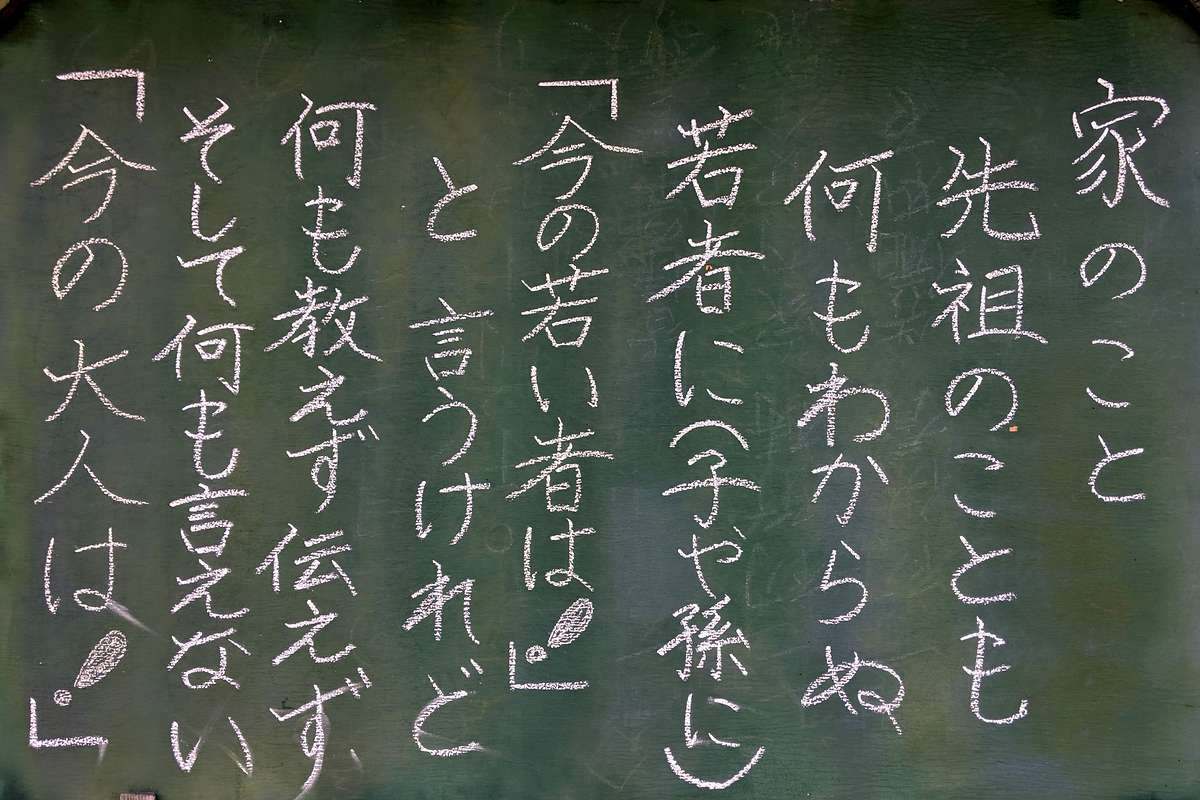 家のこと
先祖のことも
何もわからぬ
若者に(子や孫に)
「今の若い者は！」
と 言うけれど
何も教えず 伝えず、
そして何も言えない
「今の大人は！」